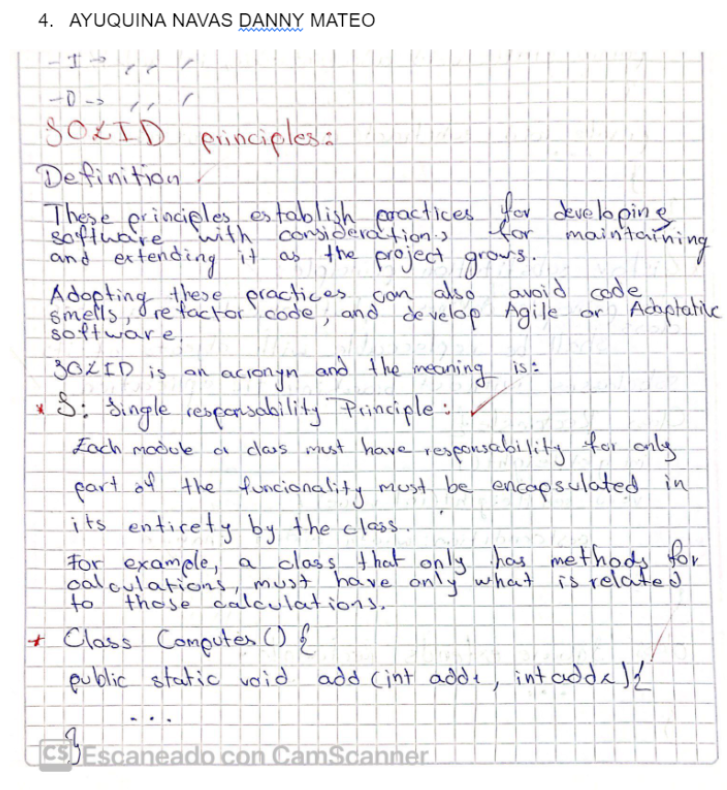 4. AYUQUINA NAVAS DANNY MATEO
- I → ,, ,
- D -> ,, ,
SOLID principles:
Definition
These principles establish practices for developing
software with considerations for maintaining
and extending it as the project grows.
Adopting these practices can also avoid code
smells, refactor code, and develop Agile or Adaptative
software.
SOLID is an acronyn and the meaning is:
* S: Single responsability Principle:
Each module or class must have responsability for only
part of the funcionality must be encapsulated in
its entirety by the class.
For example, a class that only has methods for
calculations, must have only what is related
to those calculations.
+ Class Computer () {
public static void add (int add1, int add2) {
....
}
CS Escaneado con CamScanner